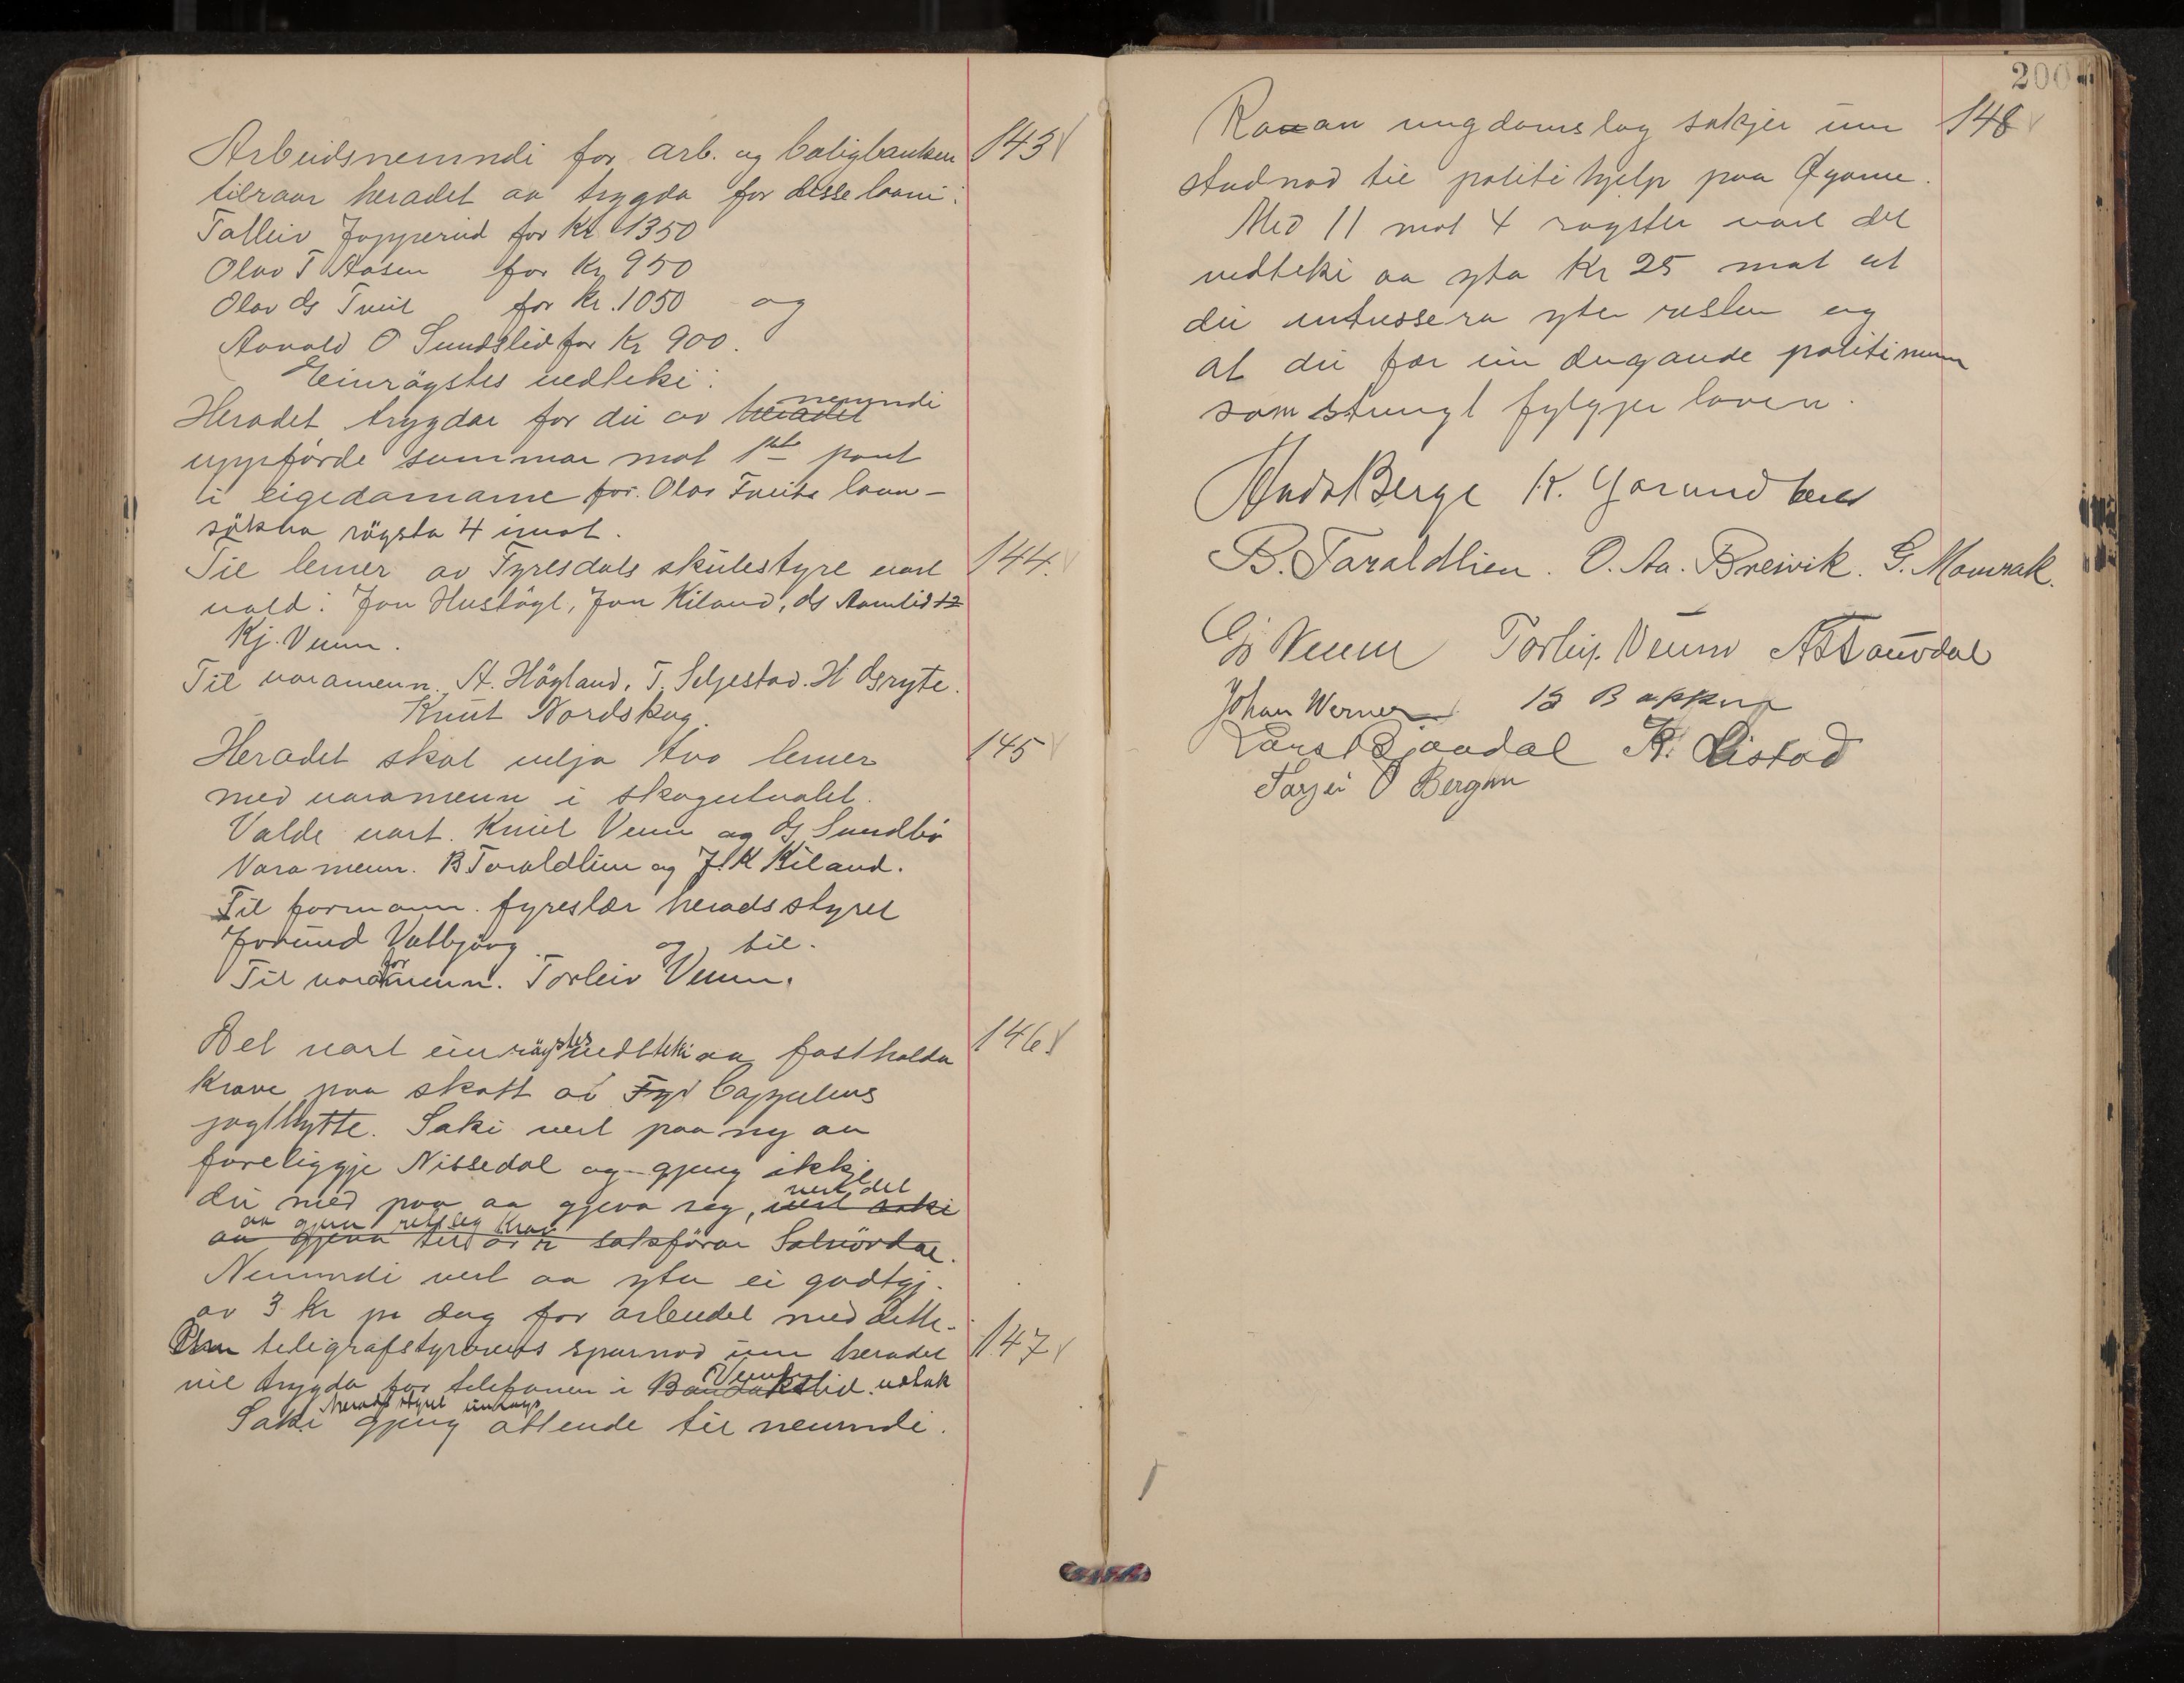 Arbeidsnemndi for arb. og boligbanken 143
tilraar heradet aa trygda for desse laani:
Talleiv Jopperud for Kr. 1350
Olav T Aasen for Kr 950
Olav Gs Tveit for Kr. 1050 og
Aanald O Sundslid for Kr 900.
Einrøgstes vedteki:
Heradet trygdar for dei av heradet nemndi
uppførde summar mot 1ste pant
i eigedamame for. Olav Tveits laan-
søkna røysta 4 imot.
Til lemer av Fyresdals skulestyre vart 144.
vald: Jon Hustøyl, Jon Kiland, Gs Aamlid
Kj. Veum.
Til varamenn. A. Høgland, T. Seljestad. H Gryte.
Knut Nordskog.
Heradet skal velja tvo lemer 145
med varamenn i skogutvalet.
Valde vart. Knut Veum og Gs Sundbø
Varamenn. B Taraldlien og J. K Kiland.
Til formann. fyreslær heradsstyret
Jørund Vatbjørg og til.
Til vara for menn. Torleiv Veum.
Det vart einrøystes vedteki aa fasthalda 146.
Krave paa skatt av Fyr Cappelens
jagthytte. Saki vert paa ny aa
foreliggje Nissedal og gjeng ikkje
dei med paa aa gjeva seg, vert saki vert det
aa gjera retsleg Krav
aa gjeva til o.r.s saksførar Salvørdal.
Nemndi vert aa yta ei godtgj.
av 3 Kr pr dag for arbeidet med dette.
Um telegrafstyrets spurnad um heradet 147
vil trygda for telefonen i Bandakslid Veum. vedtak
heradsstyret
Saki gjeng attende til nemndi.
200
Raaan ungdomslag søkjer um 148
studnad til politihjelp paa Øyane.
Med 11 mot 4 røyster vart det
vedteki aa yta Kr 25 mot at
dei intressera yter resten og
at dei fær ein dugande politimann
som strengt fylgjer loven.
Ands Berge K. Gorund
B. Taraldlien. O. Aa. Breivik. G. Momrak.
Gj Veum Torleiv. Veum
Johan Werner
Lars Bjaadal K. Listad
Tarjei O Bergan